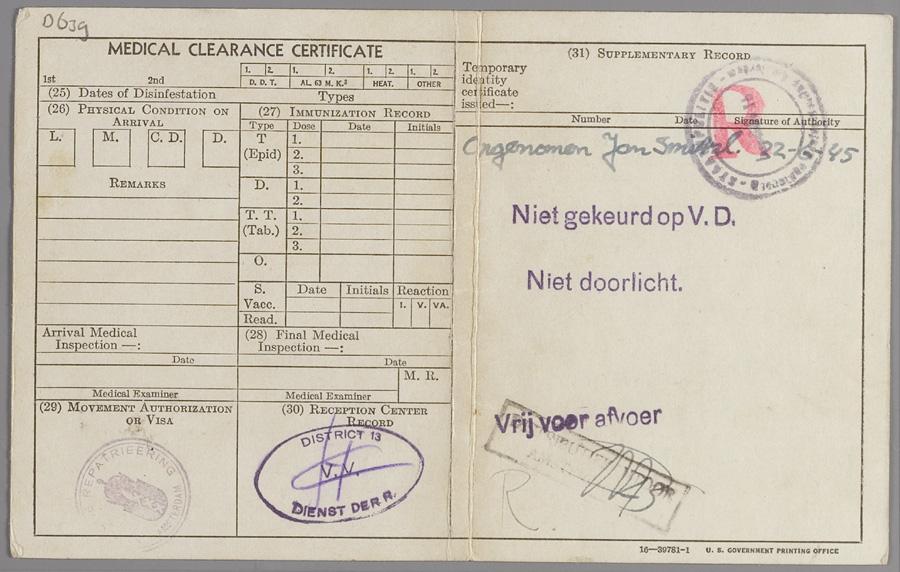 D639
MEDICAL CLEARANCE CERTIFICATE
1st 2nd
1. 2. 1. 2. 1. 2. 1. 2.
D. D. T. AL. 63 M. K.³ HEAT. OTHER
(25) Dates of Disinfestation Types
(26) PHYSICAL CONDITION ON ARRIVAL
L. M. C. D. D.
REMARKS
(27) IMMUNIZATION RECORD
Type Dose Date Initials
T (Epid) 1.
2.
3.
D. 1.
2.
T. T. (Tab.) 1.
2.
3.
O.
S. Date Initials Reaction
Vacc. I. V. VA.
Read.
Arrival Medical
Inspection —:
Date
Medical Examiner
(28) Final Medical
Inspection —:
Date
M. R.
Medical Examiner
(29) MOVEMENT AUTHORIZATION
OR VISA
REPATRIEERING
AMSTERDAM
(30) RECEPTION CENTER
RECORD
DISTRICT 13
V.V.
DIENST DER R.
(31) SUPPLEMENTARY RECORD
Temporary
identity
certificate
issued—:
Number Date Signature of Authority
R
Jan 22-6-45
Niet gekeurd op V. D.
Niet doorlicht.
Vrij voor afvoer
R.
16—39781-1 U. S. GOVERNMENT PRINTING OFFICE